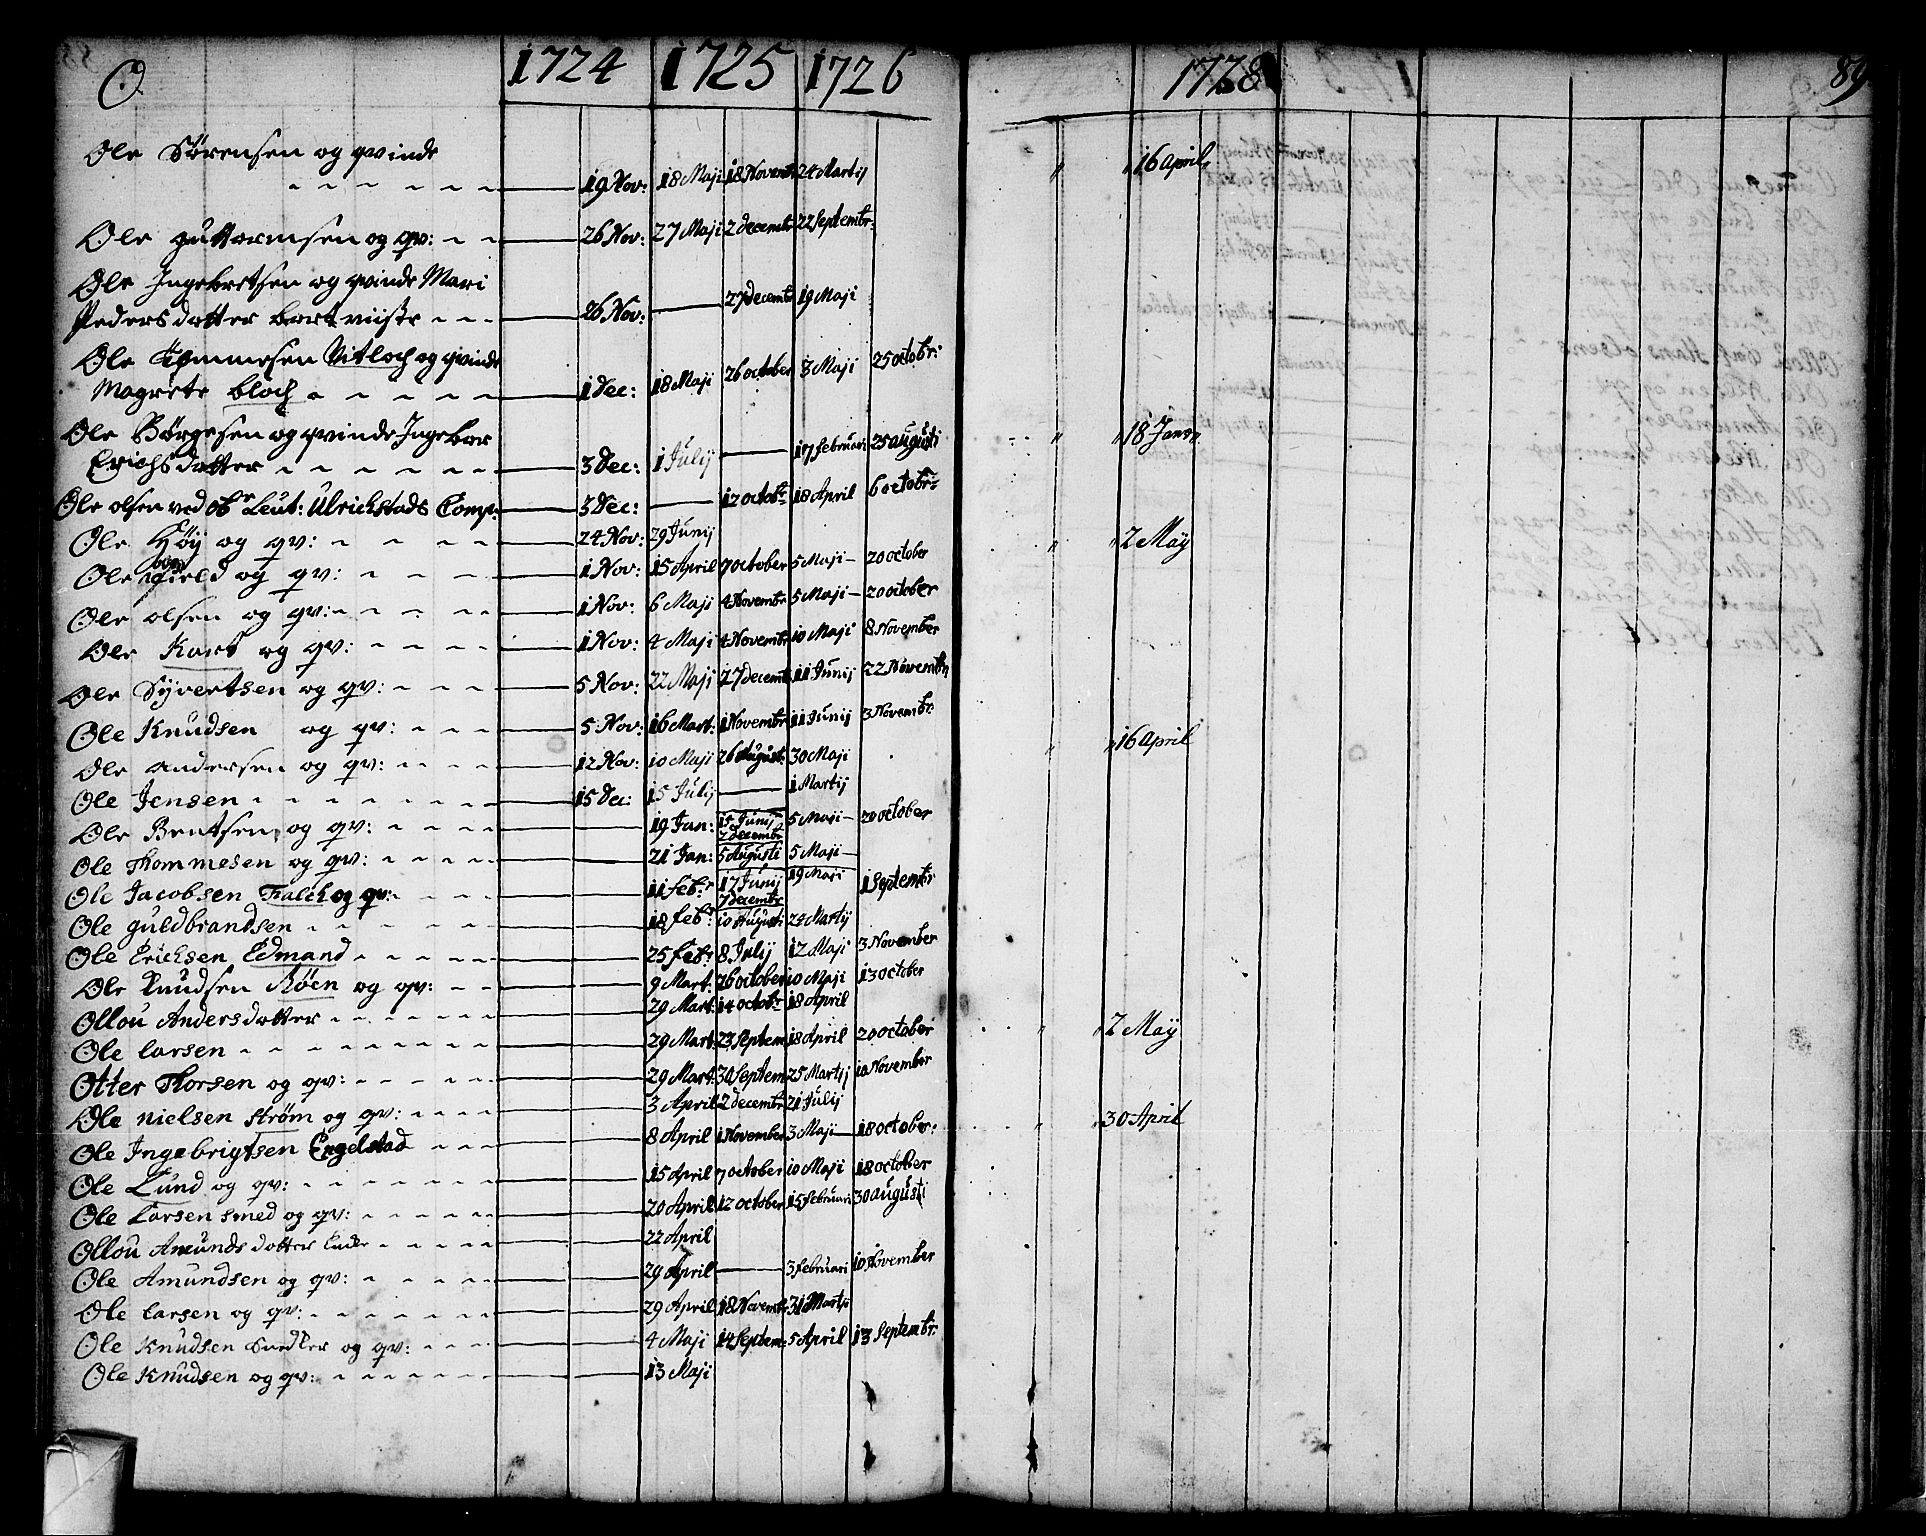 O 1724 1725 1726 1728 89
Ole Sørensen og qvinde
19 Nov: 18 Maji 18 Novemb 24 Martij " " 16 april
Ole guttormsen og qv: 26 Nov: 27 Maji 2 decembr 22 Septembr:
Ole Ingebretsen og qvinde Mari
Pedersdatter 26 Nov: 27 decembr 19 Maji
Ole Tommesen Vitloch og qvinde
Magrete bloch 1 Dec: 18 Maji 26 october 8 Maji 25 octobr:
Ole Børgesen og qvinde Ingebor
Erichsdatter 3 Dec: 1 Julij 17 Februari 25 augusti " " 18 Jan
Ole olsen ved ob Leut: Ulrichstads Comp: 3 Dec: 12 octobr 18 April 6 octobr:
Ole Høij og qv: 24 Nov: 29 Junij " " 2 Maÿ
Ole og qv: 1 Nov: 15 April 7 october 5 Maji 20 october
Ole olsen og qv: 1 Nov: 6 Maji 4 Novembr 5 Maji 20 october
Ole Kort og qv: 1 Nov: 4 Maji 4 Novembr 10 Maji 8 November
Ole Sÿvertsen og qv: 5 Nov: 22 Maji 27 decemb 11 Junij 22 Novembr
Ole Knudsen og qv: 5 Nov: 16 Mart: 1 Novembr 11 Junij 3 Novembr:
Ole andersen og qv: 12 Nov: 10 Maji 26 August: 30 Maji " " 16 April
Ole Jensen 15 dec: 15 Julij 1 Martij
Ole Bentsen og qv: 19 Jan: 15 Junij 2 decembr 5 Maji 20 october
Ole Thommesen og qv: 21 Jan: 5 Augusti 5 Maji
Ole Jacobsen Falch og qv: 11 febr 17 Junij 7 decembr 19 Maji 1 Septembr
Ole guldbrandsen 18 febr 10 Augusti 24 Martij
Ole Ericksen Edmand 25 feb: 8 Julij 12 Maji 3 November
Ole Knudsen Røen og qv: 9 Mart. 26 october 10 Maji 13 october
Ollou Andersdatter 29 Mart. 14 octobr 18 April
Ole larsen 29 Mart. 23 Septem 18 April 20 october " " 2 Maÿ
Otter Thorsen og qv: 29 Mart. 30 Septem 25 Martij 10 November
Ole nielsen strøm og qv: 3 April 2 decembr 21 Julij
Ole Ingebrigtsen Engelstad 8 April 1 November 3 Maji 18 october: " " 30 April
Ole Lund og qv: 15 April 7 october 10 Maji 18 october
Ole Larsen smed og qv: 20 April 12 october 15 Februari 30 augusti
Ollou Amunds dotter Enke 22 April
Ole Amundsen og qv: 29 April 3 Februari 10 November
Ole larsen og qv: 29 April 18 Novembr 31 Martij
Ole Knudsen og qv: 4 Maji 14 Septem: 5 April 13 Septembr:
Ole Knudsen og qv: 13 Maji